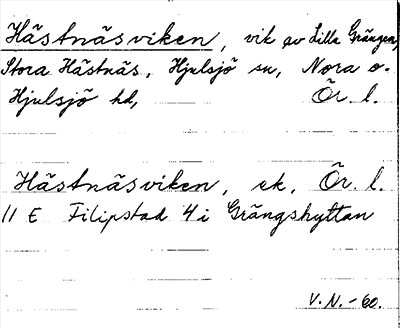 Hästnäsviken, vik av Lilla Grängen,
Stora Hästnäs, Hjulsjö sn, Nora o.
Hjulsjö hd, Ör. l.
Hästnäsviken, ek, Ör. l.
11 E Filipstad 4 i Grängshyttan
V.N.-60.